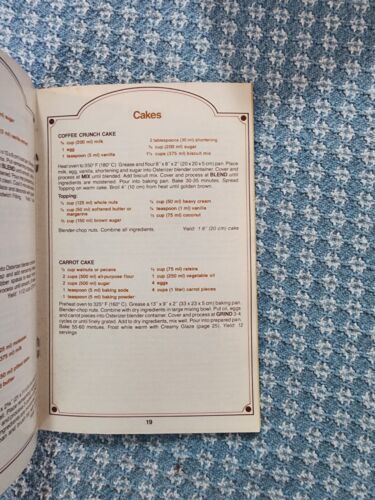 Cakes
COFFEE CRUNCH CAKE
¾ cup (200 ml) milk
1 egg
1 teaspoon (5 ml) vanilla
2 tablespoons (30 ml) shortening
¾ cup (200 ml) sugar
1½ cups (375 ml) biscuit mix
Heat oven to 350°F (180°C). Grease and flour 8" x 8" x 2" (20 x 20 x 5 cm) pan. Place
milk, egg, vanilla, shortening and sugar into Osterizer blender container. Cover and
process at MIX until blended. Add biscuit mix. Cover and process at BLEND until
ingredients are moistened. Pour into baking pan. Bake 30-35 minutes. Spread
Topping on warm cake. Broil 4" (10 cm) from heat until golden brown.
Topping:
½ cup (125 ml) whole nuts
¼ cup (50 ml) softened butter or
margarine
cup (150 ml) brown sugar
¼ cup (50 ml) heavy cream
teaspoon (1 ml) vanilla
cup (75 ml) coconut
Blender-chop nuts. Combine all ingredients.
Yield: 1 8" (20 cm) cake
CARROT CAKE
cup walnuts or pecans
2 cups (500 ml) all-purpose flour
2 cups (500 ml) sugar
1 teaspoon (5 ml) baking soda
1 teaspoon (5 ml) baking powder
cup (75 ml) raisins
1 cup (250 ml) vegetable oil
4 eggs
4 cups (1 liter) carrot pieces
Preheat oven to 325°F (160°C). Grease a 13" x 9" x 2" (33 x 23 x 5 cm) baking pan.
Blender-chop nuts. Combine with dry ingredients in large mixing bowl. Put oil, eggs
and carrot pieces into Osterizer blender container. Cover and process at GRIND 3-4
cycles or until finely grated. Add to dry ingredients, mix well. Pour into prepared pan.
Bake 55-60 minutes. Frost while warm with Creamy Glaze (page 25). Yield: 12
servings.
19